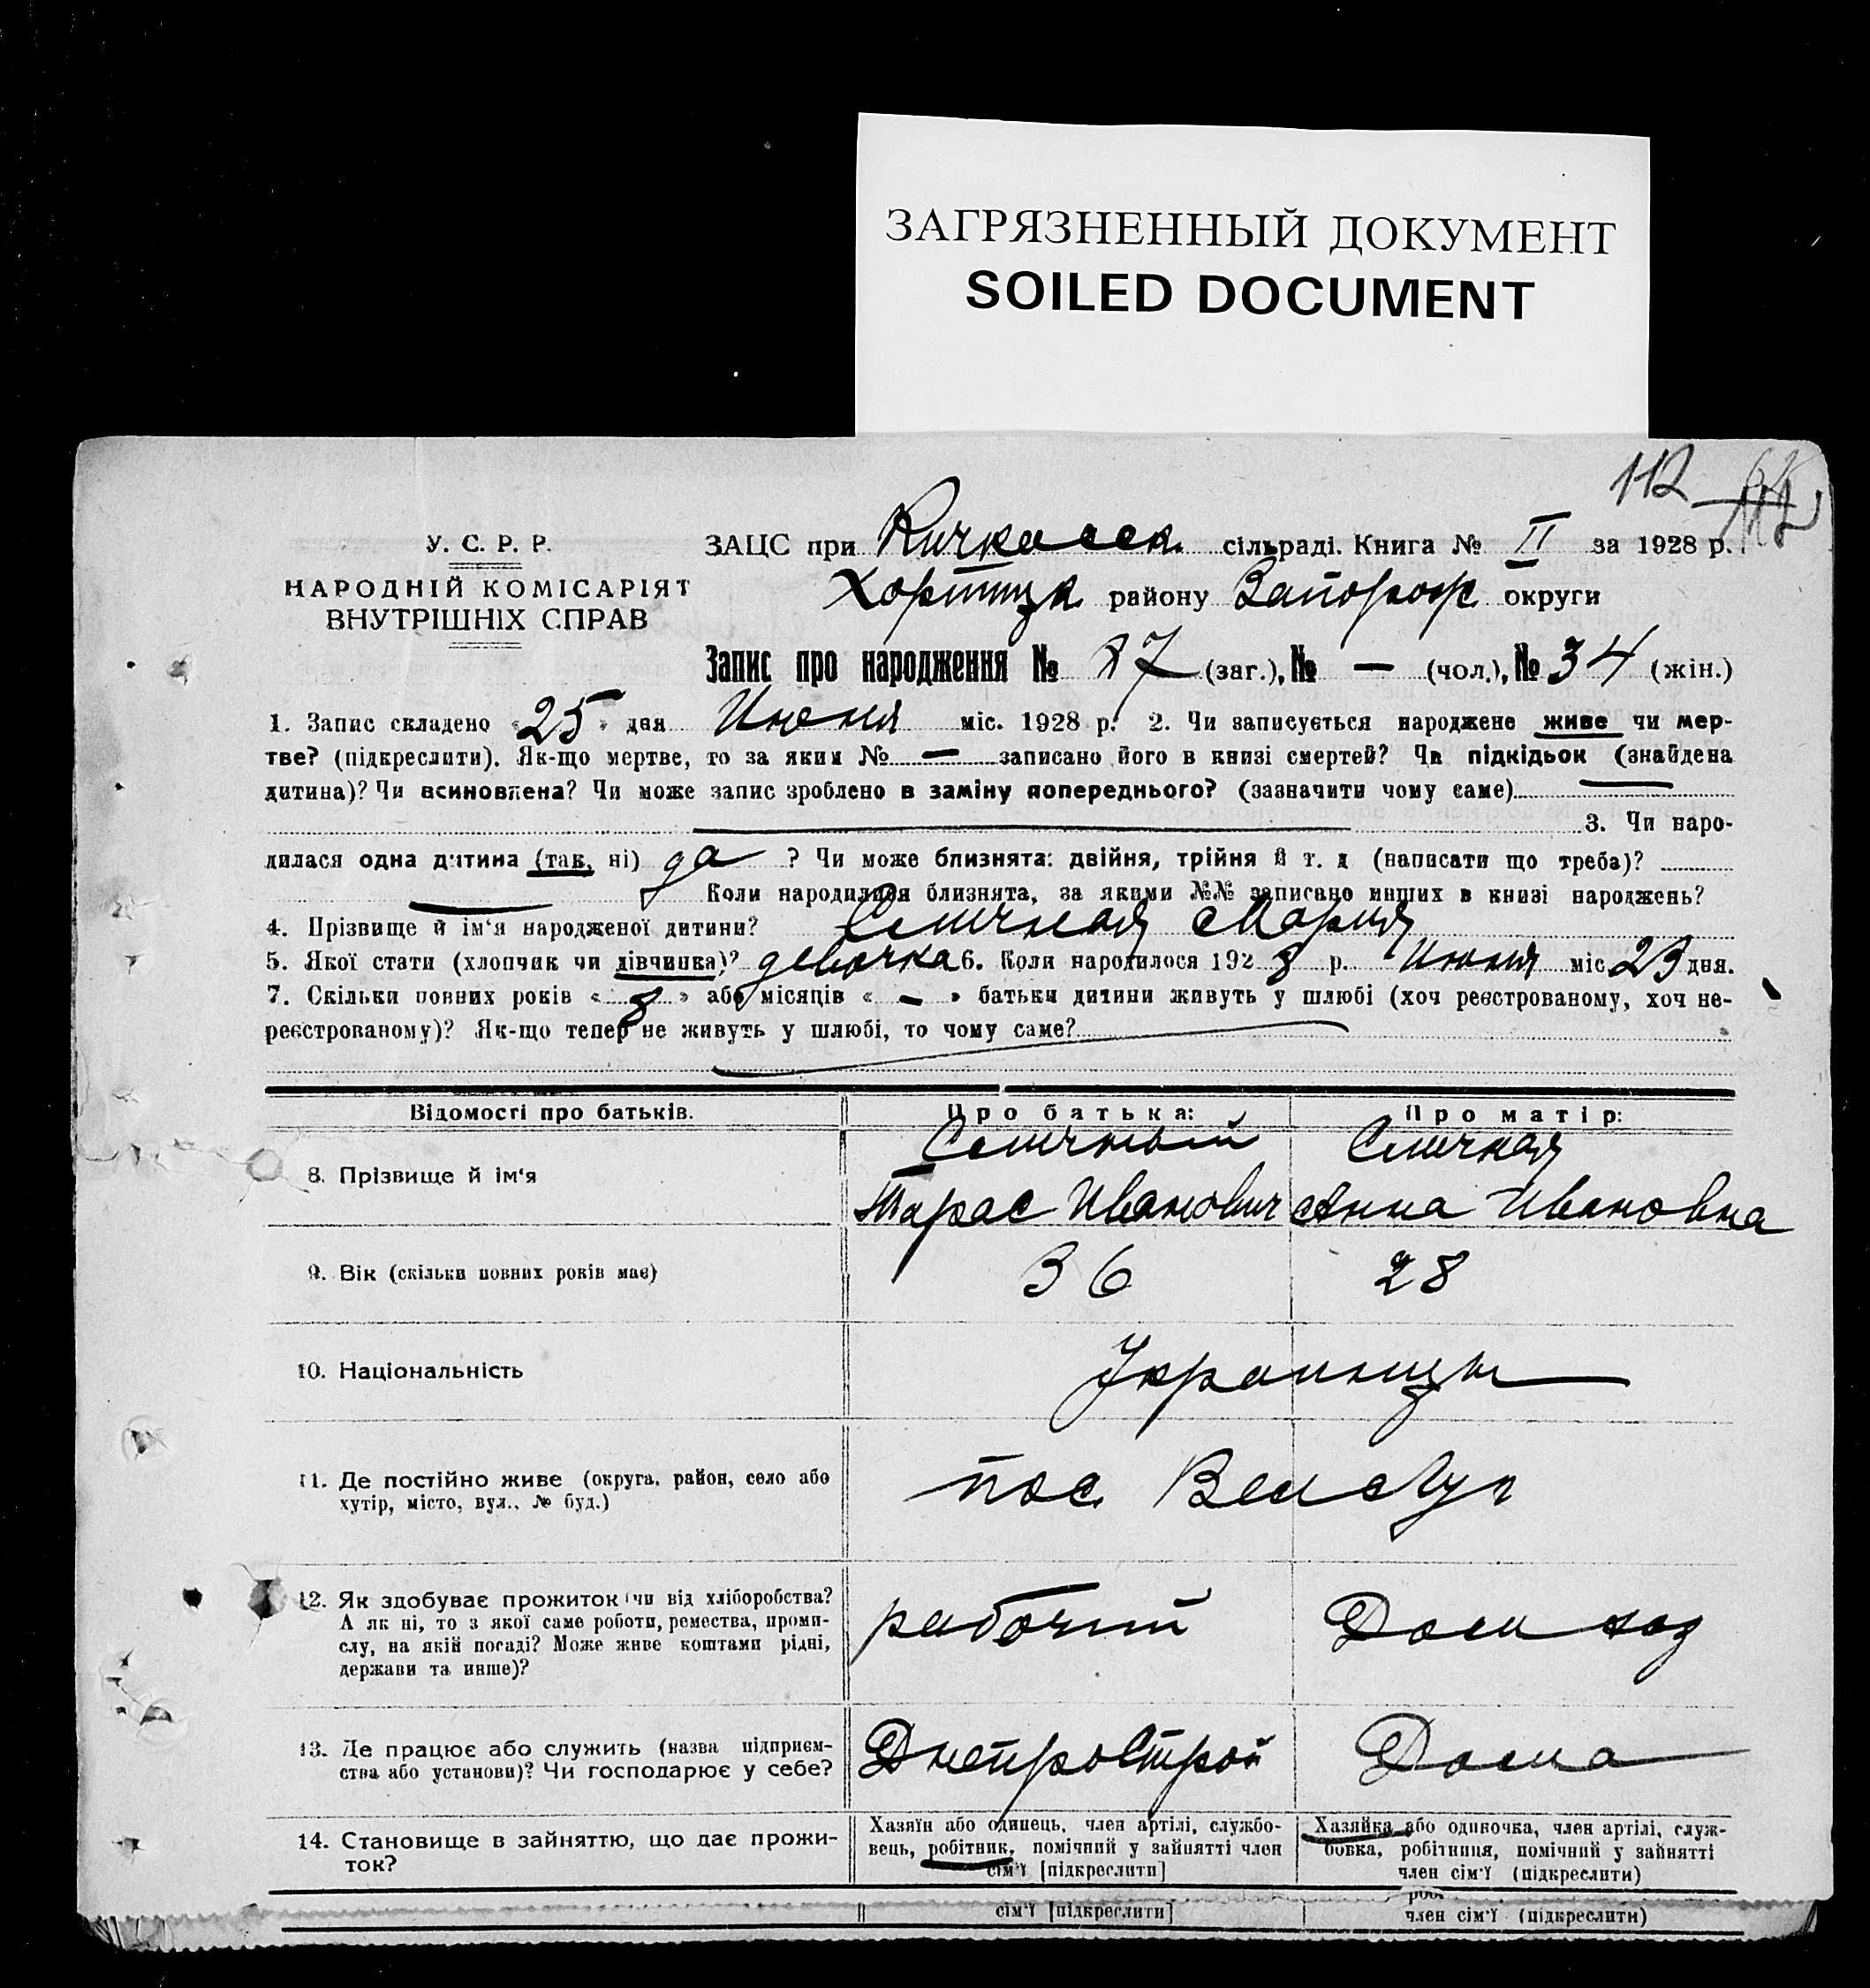 ЗАГРЯЗНЕННЫЙ ДОКУМЕНТ
SOILED DOCUMENT
112
У. С. Р. Р.
НАРОДНІЙ КОМІСАРІЯТ
ВНУТРІШНІХ СПРАВ
ЗАЦС при Кичкасск. сільраді. Книга № II за 1928 р.
Хортицк. району Запорож. округи
Запис про народження № 87 (заг.), № — (чол.), № 34 (жін.)
1. Запис складено «25» дня Июня міс. 1928 р. 2. Чи записується народжене живе чи мер-
тве? (підкреслити). Як-що мертве, то за яким № — записано його в книзі смертей? Чи підкідьок (знайдена
дитина)? Чи всиновлена? Чи може запис зроблено в заміну попереднього? (зазначити чому саме)
3. Чи наро-
дилася одна дитина (так, ні) да ? Чи може близнята: двійня, трійня й т. д (написати що треба)?
Коли народилися близнята, за якими №№ записано инших в книзі народжень?
4. Прізвище й ім'я народженої дитини? Мария
5. Якої стати (хлопчик чи дівчинка)? девочка 6. Коли народилося 1928 р. Июня міс. 23 дня.
7. Скільки повних років «8» або місяців «—» батьки дитини живуть у шлюбі (хоч реєстрованому, хоч не-
реєстрованому)? Як-що тепер не живуть у шлюбі, то чому саме?
Відомості про батьків. Про батька: Про матір:
8. Прізвище й ім'я
Тарас Иванович Анна Ивановна
9. Вік (скільки повних років має) 36 28
10. Національність Украинцы
11. Де постійно живе (округа, район, село або
хутір, місто, вул., № буд.)
пос.
12. Як здобуває прожиток (чи від хліборобства?
А як ні, то з якої саме роботи, ремества, проми-
слу, на якій посаді? Може живе коштами рідні,
держави та инше)?
рабочий Дом хоз
13. Де працює або служить (назва підприєм-
ства або установи)? Чи господарює у себе?
Днепрострой Дома
14. Становище в зайняттю, що дає прожи-
ток?
Хазяїн або одинець, член артілі, службо-
вець, робітник, помічний у зайнятті член
сім'ї [підкреслити]
Хазяйка або одиночка, член артілі, служ-
бовка, робітниця, помічний у зайнятті
член сім'ї (підкреслити)
сім'ї [підкреслити]
член сім'ї (підкреслити)